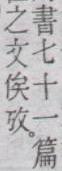 周書七十一篇
之文俟攷。